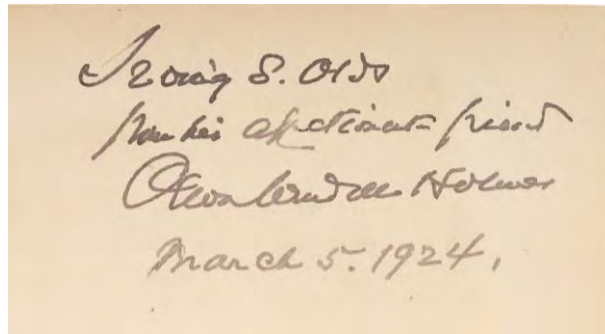 Irving S. Olds
from his affectionate friend
Oliver Wendell Holmes
March 5. 1924.